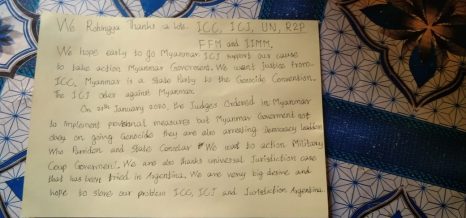 We Rohingya Thanks a lots. ICC, ICJ, UN, R2P
FFM and IIMM,
We hope early to go Myanmar ICJ support our cause
to take action Myanmar Goverment. We want Justice from
ICC, Myanmar is a State Party to the Genocide Convention.
The ICJ oder against Myanmar.
On 23th January 2020 the Judges Ordered in Myanmar
to implement provisional measures but Myanmar Goverment not
obey on going Genocide they are also arresting Democracy leaddes
Who and State Conselar We want to action Military
Coup Goverment. We are also thanks universal Jurisdiction case
that has been tried in Argentina. We are verry big desire and
hope to slove our problem ICC, ICJ and Juristiction Argentina.